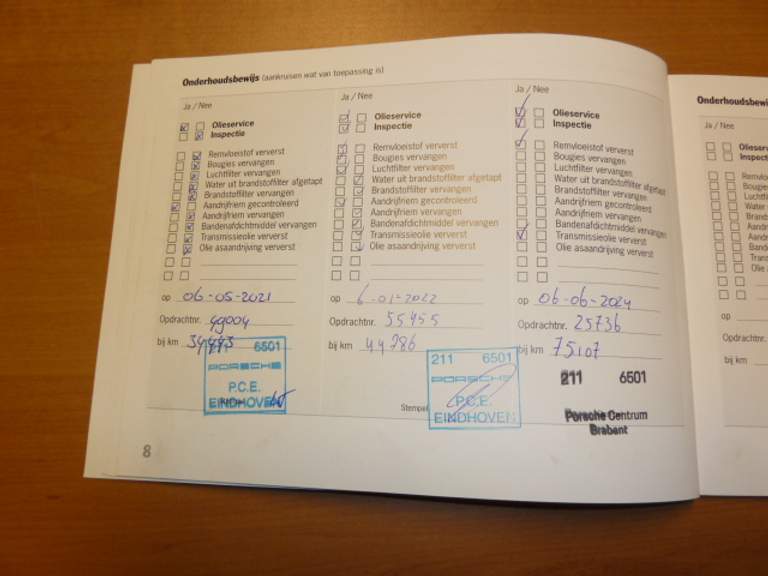 Onderhoudsbewijs (aankruisen wat van toepassing is)
Ja / Nee
Olieservice
Inspectie
Remvloeistof ververst
Bougies vervangen
Luchtfilter vervangen
Water uit brandstoffilter afgetapt
Brandstoffilter vervangen
Aandrijfriem gecontroleerd
Aandrijfriem vervangen
Bandenafdichtmiddel vervangen
Transmissieolie ververst
Olie asaandrijving ververst
op 06-05-2021
Opdrachtnr. 49004
bij km
211 6501
PORSCHE
P.C.E.
EINDHOVEN
8
Ja / Nee
Olieservice
Inspectie
Remvloeistof ververst
Bougies vervangen
Luchtfilter vervangen
Water uit brandstoffilter afgetapt
Brandstoffilter vervangen
Aandrijfriem gecontroleerd
Aandrijfriem vervangen
Bandenafdichtmiddel vervangen
Transmissieolie ververst
Olie asaandrijving ververst
op 6-01-2022
Opdrachtnr. 55455
bij km 44786
Stempel
211 6501
PORSCHE
P.C.E.
EINDHOVEN
Ja / Nee
Olieservice
Inspectie
Remvloeistof ververst
Bougies vervangen
Luchtfilter vervangen
Water uit brandstoffilter afgetapt
Brandstoffilter vervangen
Aandrijfriem gecontroleerd
Aandrijfriem vervangen
Bandenafdichtmiddel vervangen
Transmissieolie ververst
Olie asaandrijving ververst
op 06-06-2024
Opdrachtnr. 25736
bij km 75107
211 6501
Porsche Centrum
Brabant
Onderhoudsbewij
Ja / Nee
Olieserv
Inspectie
Remvloe
Bougies
Luchtfil
Water
Brands
Aandr
Aandr
Band
Trans
Olie a
op
Opdrachtnr.
bij km